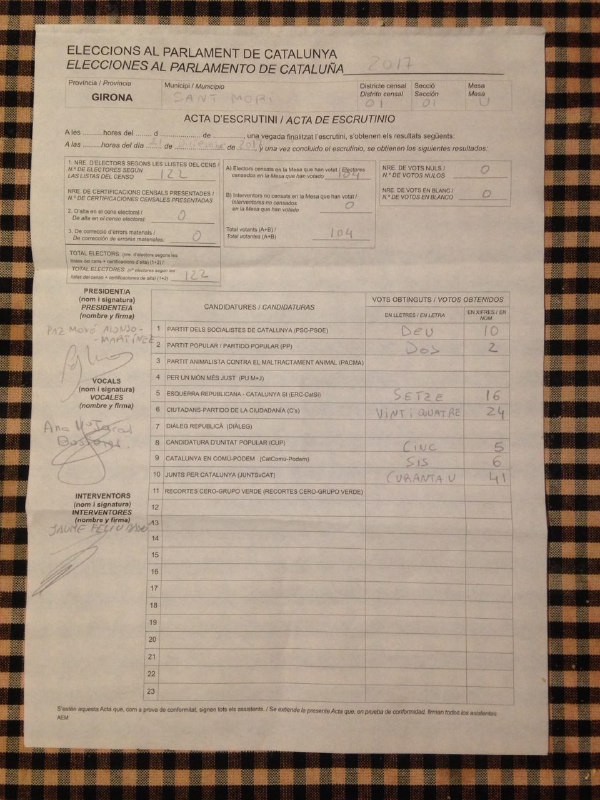 ELECCIONS AL PARLAMENT DE CATALUNYA
ELECCIONES AL PARLAMENTO DE CATALUÑA 2017
Província / Provincia
GIRONA
Municipi / Municipio
SANT MORI
Districte censal
Distrito censal
01
Secció
Sección
01
Mesa
Mesa
U
ACTA D'ESCRUTINI / ACTA DE ESCRUTINIO
A les ..........hores del ........ d ...................... de ............, una vegada finalitzat l'escrutini, s'obtenen els resultats següents:
A las ..........hores del día 21 de de 2017, una vez concluido el escrutinio, se obtienen los siguientes resultados:
1. NRE. D'ELECTORS SEGONS LES LLISTES DEL CENS /
N.º DE ELECTORES SEGÚN
LAS LISTAS DEL CENSO 122
NRE. DE CERTIFICACIONS CENSALS PRESENTADES /
N.º DE CERTIFICACIONES CENSALES PRESENTADAS
2. D'alta en el cens electoral /
De alta en el censo electoral: 0
3. De correcció d'errors materials /
De corrección de errores materiales: 0
TOTAL ELECTORS: (nre. d'electors segons les
llistes del cens + certificacions d'alta) (1+2) /
TOTAL ELECTORES: (nº electores según las
listas del cens + certificaciones de alta) (1+2) 122
A) Electors censats en la Mesa que han votat / Electores
censados en la Mesa que han votado 104
B) Interventors no censats en la Mesa que han votat /
Interventores no censados
en la Mesa que han votado 0
Total votants (A+B) /
Total votantes (A+B) 104
NRE. DE VOTS NULS /
N.º DE VOTOS NULOS 0
NRE. DE VOTS EN BLANC /
N.º DE VOTOS EN BLANCO 0
PRESIDENT/A
(nom i signatura)
PRESIDENTE/A
(nombre y firma)
PAZ MOYÓ ALONSO-
MARTÍNEZ
VOCALS
(nom i signatura)
VOCALES
(nombre y firma)
Ana Mª
INTERVENTORS
(nom i signatura)
INTERVENTORES
(nombre y firma)
JAUME FELIU
CANDIDATURES / CANDIDATURAS
VOTS OBTINGUTS / VOTOS OBTENIDOS
EN LLETRES / EN LETRA
EN XIFRES / EN NÚM.
1 PARTIT DELS SOCIALISTES DE CATALUNYA (PSC-PSOE) DEU 10
2 PARTIT POPULAR / PARTIDO POPULAR (PP) DOS 2
3 PARTIT ANIMALISTA CONTRA EL MALTRACTAMENT ANIMAL (PACMA)
4 PER UN MÓN MÉS JUST (PUM+J)
5 ESQUERRA REPUBLICANA - CATALUNYA SÍ (ERC-CatSí) SETZE 16
6 CIUTADANS-PARTIDO DE LA CIUDADANÍA (C's) VINT I QUATRE 24
7 DIÀLEG REPUBLICÀ (DIÀLEG)
8 CANDIDATURA D'UNITAT POPULAR (CUP) CINC 5
9 CATALUNYA EN COMÚ-PODEM (CatComú-Podem) SIS 6
10 JUNTS PER CATALUNYA (JUNTSxCAT) CURANTA U 41
11 RECORTES CERO-GRUPO VERDE (RECORTES CERO-GRUPO VERDE)
12
13
14
15
16
17
18
19
20
21
22
23
S'estén aquesta Acta que, com a prova de conformitat, signen tots els assistents. / Se extiende la presente Acta que, en prueba de conformidad, firman todos los asistentes
AEM